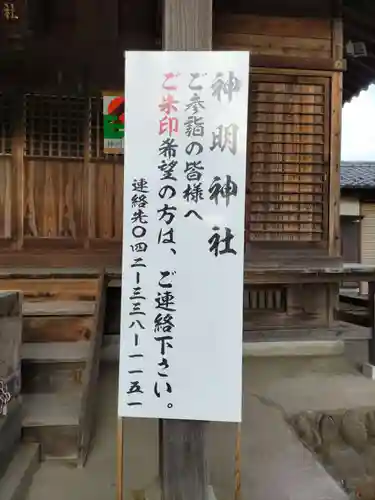 神明神社
ご参詣の皆様へ
ご朱印希望の方は、ご連絡下さい。
連絡先〇四二ー三三八ー一一五一
社